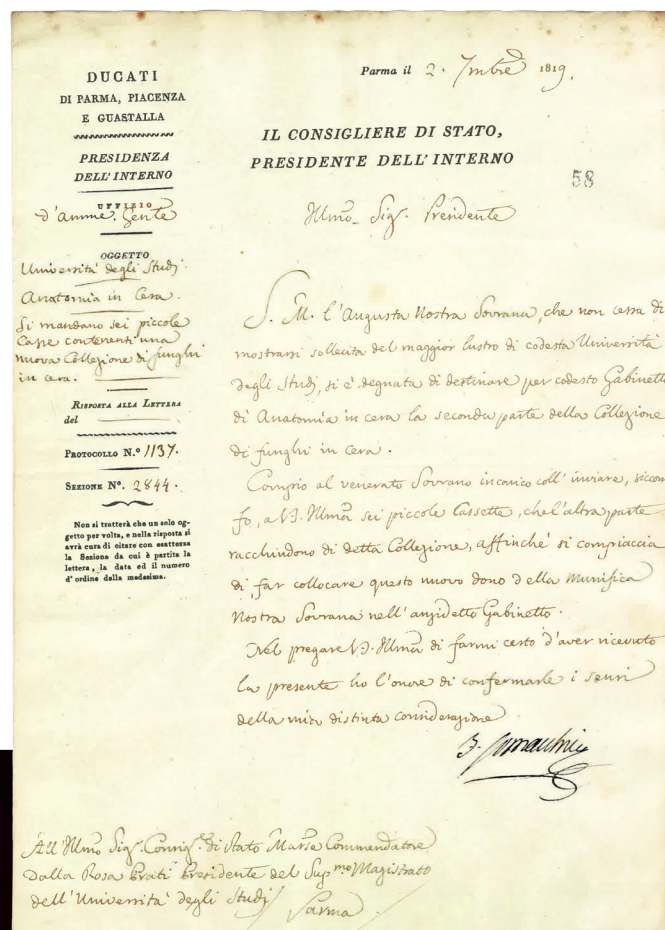 DUCATI
DI PARMA, PIACENZA
E GUASTALLA
PRESIDENZA
DELL'INTERNO
UFFIZIO
d'Amme. Gente
OGGETTO
Università degli Studj.
Anatomia in Cera.
Si mandano sei piccole
Casse contenenti una
nuova Collezione di funghi
in cera.
RISPOSTA ALLA LETTERA
del
PROTOCOLLO N.º 1137.
SEZIONE Nº. 2844.
Non si tratterà che un solo og-
getto per volta, e nella risposta si
avrà cura di citare con esattezza
la Sezione da cui è partita la
lettera, la data ed il numero
d'ordine della medesima.
Parma il 2. 7mbre 1819.
IL CONSIGLIERE DI STATO,
PRESIDENTE DELL'INTERNO
58
Illmo Sigr. Presidente
S. M. l'Augusta Nostra Sovrana, che non cessa di
mostrarsi sollecita del maggior lustro di codesta Università
degli Studj, si è degnata di destinare per codesto Gabinetto
di Anatomia in cera la seconda parte della Collezione
di funghi in cera.
Compio al venerato Sovrano incarico coll'inviare, siccom
fo, a V. S. Illma sei piccole Cassette, che l'altra parte
racchiudono di detta Collezione, affinchè si compiaccia
di far collocare questo nuovo dono della Munifica
Nostra Sovrana nell'anzidetto Gabinetto.
Nel pregare V. S. Illma di farmi certo d'aver ricevuto
la presente ho l'onore di confermarle i sensi
della mia distinta considerazione
All'Illmo Sigr. Consigre. di Stato Marse Commendatore
Dalla Rosa Prati Presidente del Supmo Magistrato
dell'Università degli Studj
Parma